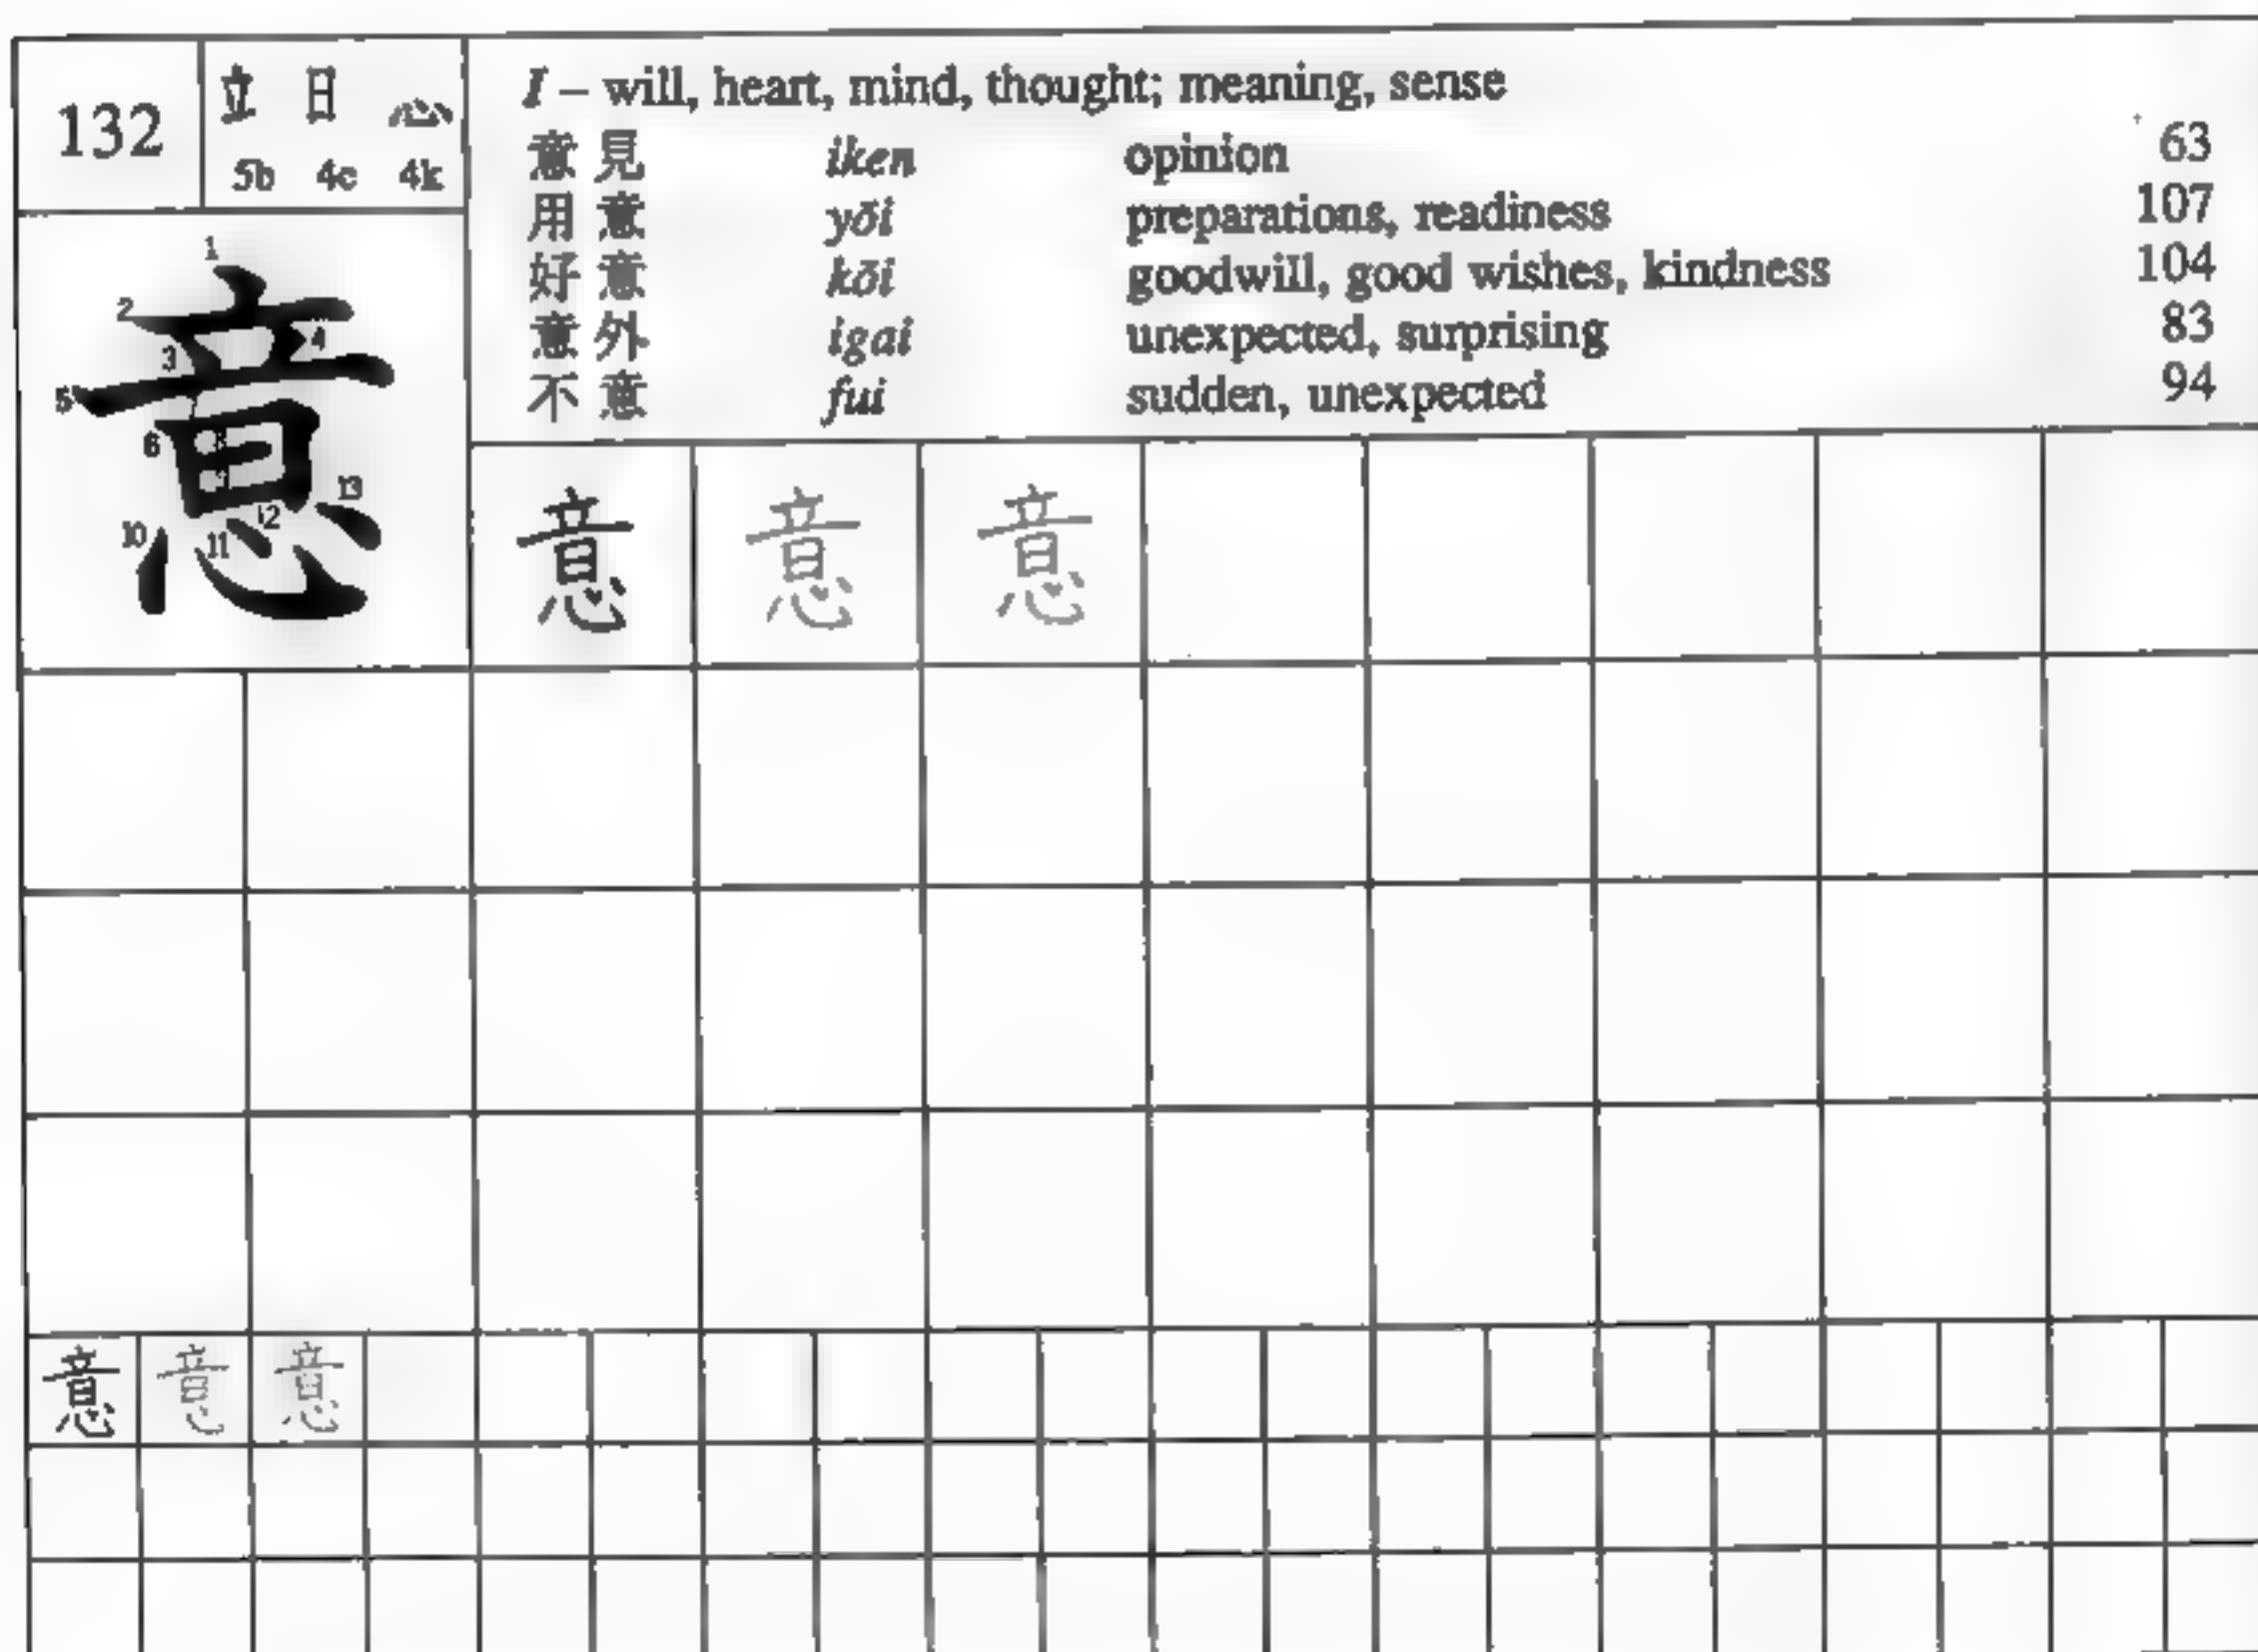 132
立 日 心
5b 4c 4k
I – will, heart, mind, thought; meaning, sense
意見 iken opinion 63
用意 yōi preparations, readiness 107
好意 kōi goodwill, good wishes, kindness 104
意外 igai unexpected, surprising 83
不意 fui sudden, unexpected 94
1
2
3 4
5
6 8
13
12
10 11
意
意 意 意
意 意 意